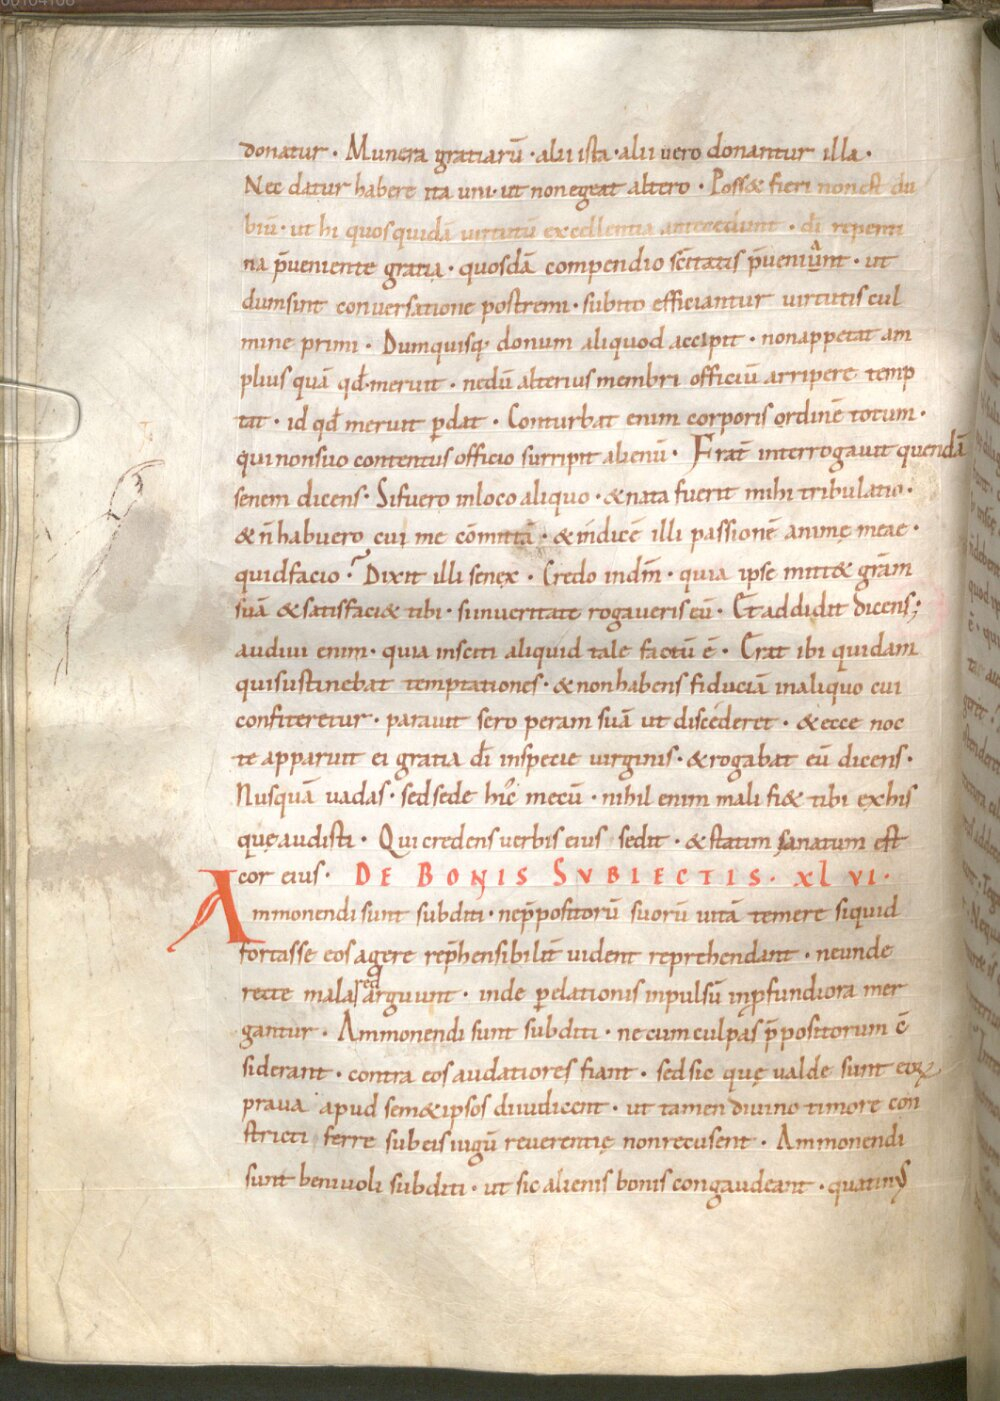 donatur · Munera gratiarū · alii ista · alii uero donantur illa ·
Nec datur habere ita uni · ut non egeat altero · Poss& fieri non est du
biū · ut hi quos quidā uirtutū excellentia antecedunt · dī repenti
na p̄ueniente gratia · quosdā compendio sc̄itatis p̄veniunt · ut
dum sint conuersatione postremi · subito efficiantur uirtutis cul
mine primi · Dum quisq; donum aliquod accipit · non appetat am
plius quā qd̄ meruit · nedū alterius membri officiū arripere temp
tat · id qd̄ meruit p̱dat · Conturbat enim corporis ordinē totum ·
qui non suo contentus officio surripit alienū · Frat̄ interrogauit quendā
senem dicens · Si fuero in loco aliquo · & nata fuerit mihi tribulatio ·
& n̄ habuero cui me cōmittā · & indicē illi passionē animę meae ·
quid facio · Dixit illi senex · Credo in dn̄m · quia ipse mitt& grām
suā & satisfaci& tibi · si in ueritate rogaueris eū · Et addidit dicens;
audiui enim · quia in sciti aliquid tale factū ē · Erat ibi quidam
qui sustinebat temptationes · & non habens fiduciā in aliquo cui
confiteretur · parauit sero peram suā ut discederet · & ecce noc
te apparuit ei gratia dī in specie uirginis · & rogabat eū dicens ·
Nusquā uadas · sed sede hic mecū · nihil enim mali fi& tibi ex his
quę audisti · Qui credens uerbis eius sedit · & statim sanatum est
cor eius · DE BONIS SVBIECTIS · XLVI ·
Ammonendi sunt subditi · ne p̄positorū suorū uitā temere si quid
fortasse eos agere rep̄hensibilit̄ uident reprehendant · ne unde
recte mala sed arguunt · inde p̱ elationis inpulsū in p̱fundiora mer
gantur · Ammonendi sunt subditi · ne cum culpas p̄positorum c̄
siderant · contra eos audatiores fiant · sed sic quę ualde sunt eoꝝ
praua apud sem&ipsos diiudicent · ut tamen diuino timore con
stricti ferre sub eis iugū reuerentię non recusent · Ammonendi
sunt beniuoli subditi · ut sic alienis bonis congaudeant · quatinꝰ